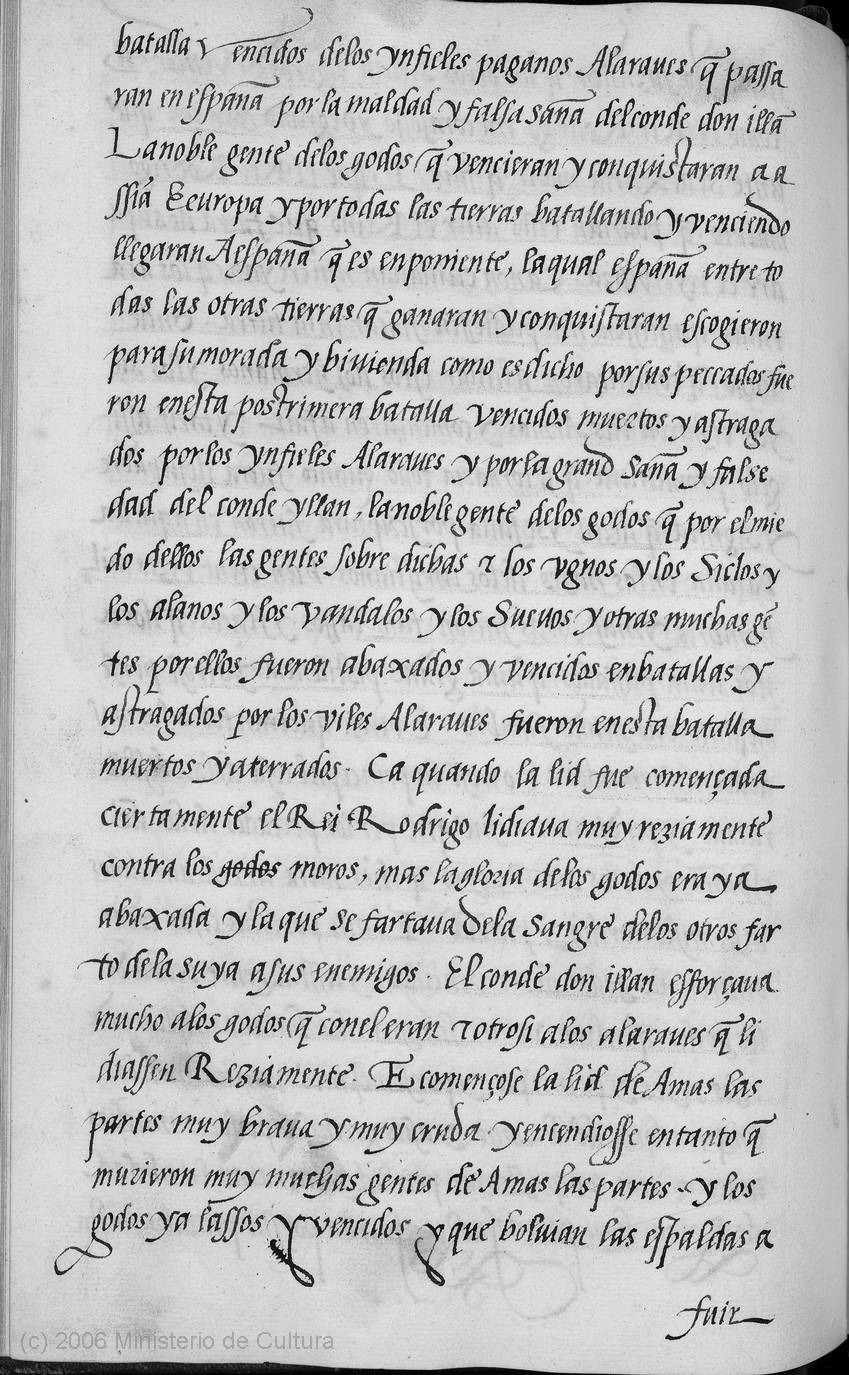 batalla Vencidos delos ynfieles paganos Alaraues q̃ passa
ran en españa por la maldad y falsa saña del conde don illã
La noble gente delos godos q̃ vencieran y conquistaran a a
ssia E europa y por todas las tierras batallando y venciendo
llegaran A españa q̃ es en poniente, la qual españa entre to
das las otras tierras q̃ ganaran y conquistaran escogieron
para su morada y bivienda como es dicho por sus peccados fue
ron en esta postrimera batalla vencidos muertos y astraga
dos por los ynfieles Alaraues y por la grand saña y false
dad del conde yllan, la noble gente delos godos q̃ por el mie
do dellos las gentes sobre dichas τ los vgnos y los Siclos y
los alanos y los Vandalos y los Sueuos y otras muchas gẽ
tes por ellos fueron abaxados y vencidos en batallas y
astragados por los viles Alaraues fueron en esta batalla
muertos y aterrados. Ca quando la lid fue començada
ciertamente el Rei Rodrigo lidiaua muy reziamente
contra los godos moros, mas la gloria delos godos era ya
abaxada y la que se fartaua dela sangre delos otros far
to dela suya a sus enemigos. El conde don illan esforçaua
mucho alos godos q̃ con el eran τ otrosi alos alaraues q̃ li
diassen Reziamente. E començose la lid de Amas las
partes muy braua y muy cruda. y encendiosse en tanto q̃
murieron muy muchas gentes de Amas las partes. y los
godos ya lassos y vencidos y que boluian las espaldas a
fuir
(c) 2006 Ministerio de Cultura